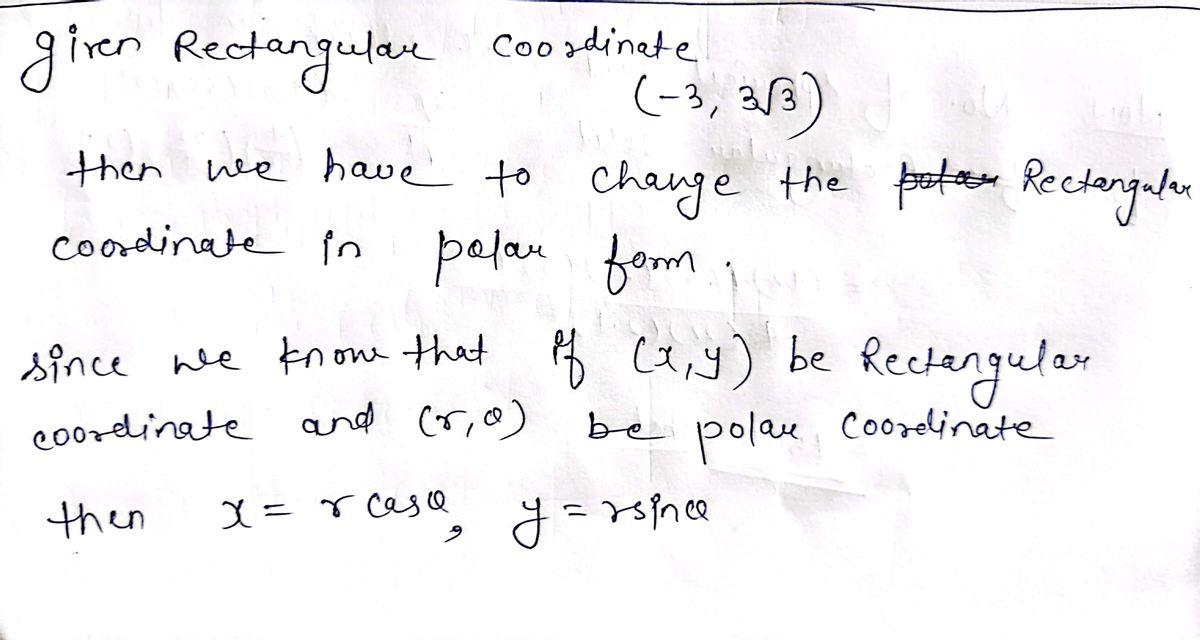 given Rectangular coordinate
(-3, 3√3)
then we have to change the polar Rectangular
coordinate in polar form.
since we know that if (x,y) be Rectangular
coordinate and (r,θ) be polar coordinate
then x = r cosθ, y = r sinθ